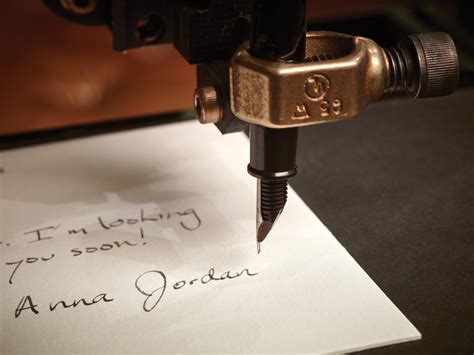 I'm looking
you soon!
Anna Jordan